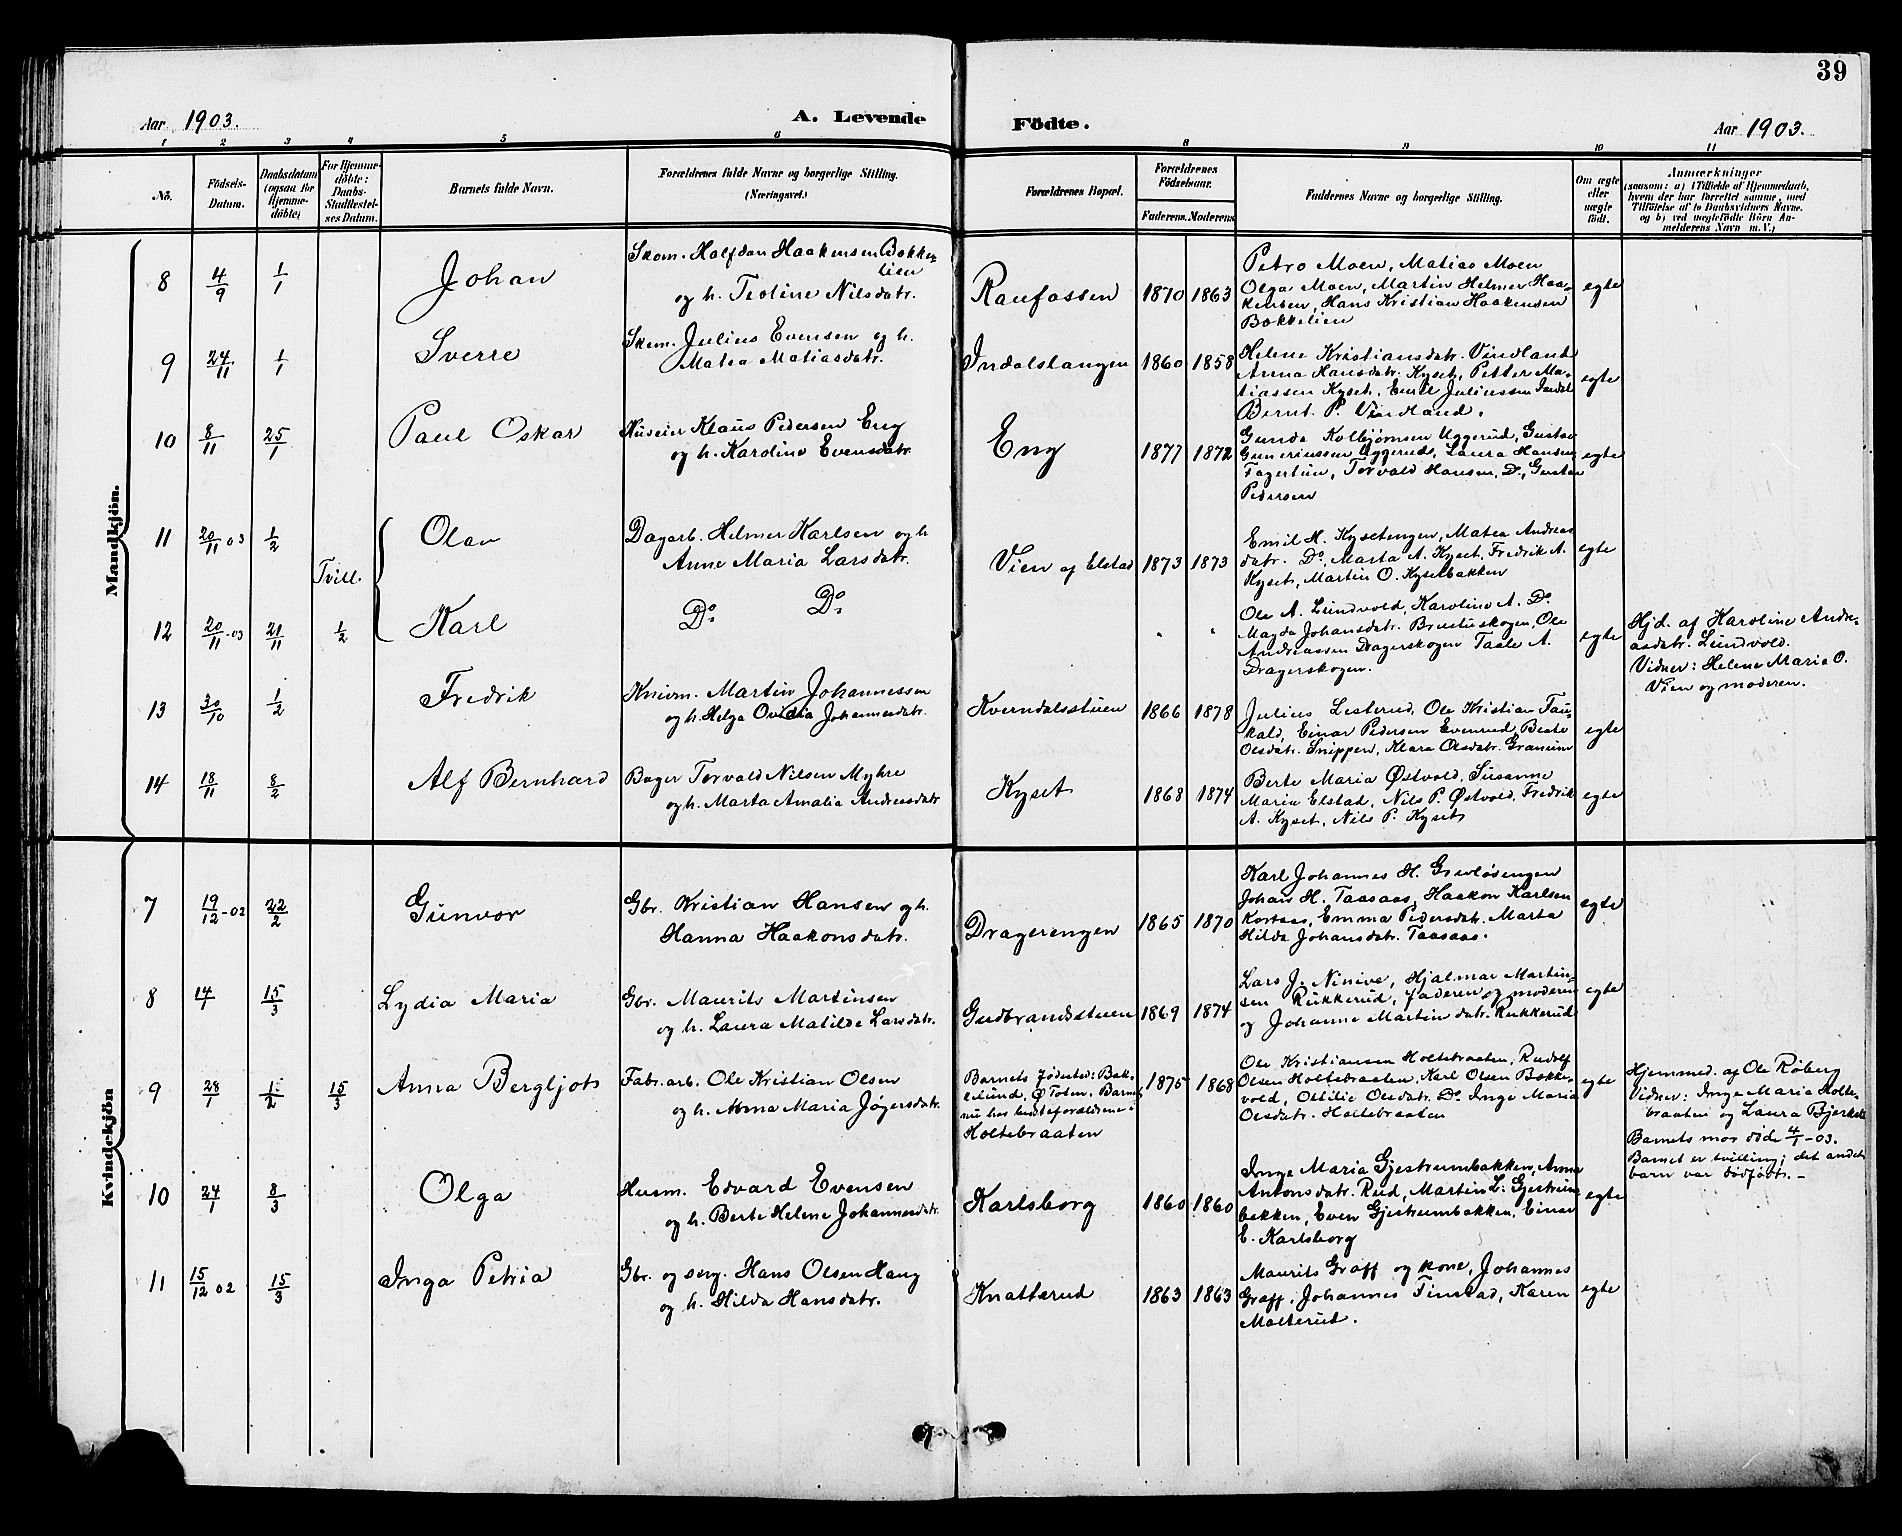 39
Aar 1903. A. Levende Födte. Aar 1903.
1 2 3 4 5 6 8 9 10 11
No. Födsels-Datum. Daabsdatum (ogsaa for Hjemmedöbte) For Hjemmedöbte: Daabs-Stadfestelses Datum. Barnets fulde Navn. Forældrenes fulde Navne og borgerlige Stilling. (Næringsvei.) Forældrenes Bopæl. Forældrenes Födselsaar. Faderens. Moderens. Faddernes Navne og borgerlige Stilling. Om ægte eller uægte født. Anmærkninger (saasom: a) i Tilfælde af Hjemmedaab, hvem der har forrettet samme, med Tilföielse af to Daabsvidners Navne, og b) ved uægtefødte Börn Anmelderens Navn m. V.)
Mandkjön.
8 4/9 1/1 Johan
Skom. Halfdan Haakensen Bokkelien
og h. Teoline Nilsdatr.
Raufossen 1870 1863
Petro Moen, Matias Moen
Olga Moen, Martin Helmer Haa-
kensen, Hans Kristian Haakensen
Bokkelien
egte
9 24/11 1/1 Sverre
Skom. Julius Evensen og h.
Matea Matiasdatr.
Indalstangen 1860 1858
Helene Kristiansdatr. Vindland
Anna Hansdatr. Kyset, Petter Ma-
tiassen Kyset, Emil Juliussen Indal
Bernt P. Vindland.
egte
10 8/11 25/1 Paul Oskar
Huseier Klaus Pedersen Eng
og h. Karoline Evensdatr.
Eng 1877 1872
Gunda Kolbjørnsen Uggerud, Gustav
Guneriussen Uggerud, Laura Hansen
Fagertun, Torvald Hansen, Do, Gustav
Pedersen
egte
11 20/11 03 1/2 Tvill. Olav
Dagarb. Helmer Karlsen og h
Anne Maria Larsdatr.
Vien af Elstad 1873 1873
Emil M. Kysetengen, Matea Andreas
datr. Do, Marta A. Kyset, Fredrik A.
Kyset, Martin O. Kysetbakken
egte
12 20/11-03 21/11 1/2 Karl
Do. Do.
" "
Ole A. Lundvold, Karoline A. Do.
Magda Johansdatr. Brustuskogen, Ole
Andreassen Dragerskogen Taale A.
Dragerskogen.
egte
Hjd. af Karoline Andre-
asdatr. Lundvold.
Vidner: Helene Maria O.
Vien og moderen.
13 30/10 1/2 Fredrik
Knivm. Martin Johannessen
og h. Helga Ovidia Johannesdatr.
Kverndalsstuen 1866 1878
Julius Lesterud, Ole Kristian Tau-
kald, Einar Pedersen Evenrud, Beate
Olsdatr. Snippen, Klara Olsdatr. Granum
egte
14 18/11 8/2 Alf Bernhard
Bager Torvald Nilsen Myhre
og h. Marta Amalia Andreasdatr
Kyset 1868 1874
Berte Maria Østvold, Susanne
Maria Elstad, Nils P. Østvold, Fredrik
A. Kyset, Nils P. Kyset
egte
Kvindekjön
7 19/12-02 22/2 Gunvor
Gbr. Kristian Hansen og h.
Hanna Haakonsdatr.
Dragerengen 1865 1870
Karl Johannes H.
Johan H. Taasaas, Haakon Karlsen
Kortaas, Emma Pedersdatr. Marta
Hilda Johansdatr. Taasaas.
egte
8 14/1 15/3 Lydia Maria
Gbr. Maurits Martinsen
og h. Laura Matilde Larsdatr.
Gudbrandsstuen 1869 1874
Lars J. Ninive, Hjalmar Martin-
sen Rukkerud, faderen og moderen
og Johanne Martinsdatr. Rukkerud
egte
9 28/1 1/2 15/3 Anna Bergljot
Fabr.arb. Ole Kristian Olsen
og h. Anna Maria Jøgersdatr.
Barnets fødested: Bak-
elund, Ø Toten. Barnet
nu hos bedsteforældrene:
Holtebraaten
1875 1868
Ole Kristiansen Holtebraaten, Rudolf
Olsen Holtebraaten, Karl Olsen Bokke-
vold, Otilie Olsdatr. Do. Inga Maria
Olsdatr. Holtebraaten
egte
Hjemmed. af Ole Røberg
Vidner: Inga Maria Holte-
braaten og Laura Bjerke
Barnets mor døde 4/1-03.
Barnet er tvilling; det andet
barn var dødfødt.-
10 24/1 8/3 Olga
Husm. Edvard Evensen
og h. Berte Helene Johannesdatr.
Karlsborg 1860 1860
Inga Maria Gjestrumbakken, Anna
Antonsdatr. Rud, Martin L. Gjestrum-
bakken, Even Gjestrumbakken, Einar
E. Karlsborg
egte
11 15/12 02 15/3 Inga Petria
Gbr. og serg. Hans Olsen Haug
og h. Hilda Hansdatr.
Knatterud 1863 1863
Maurits Graff og kone, Johannes
Graff, Johannes Finstad, Karen
Molterud.
egte